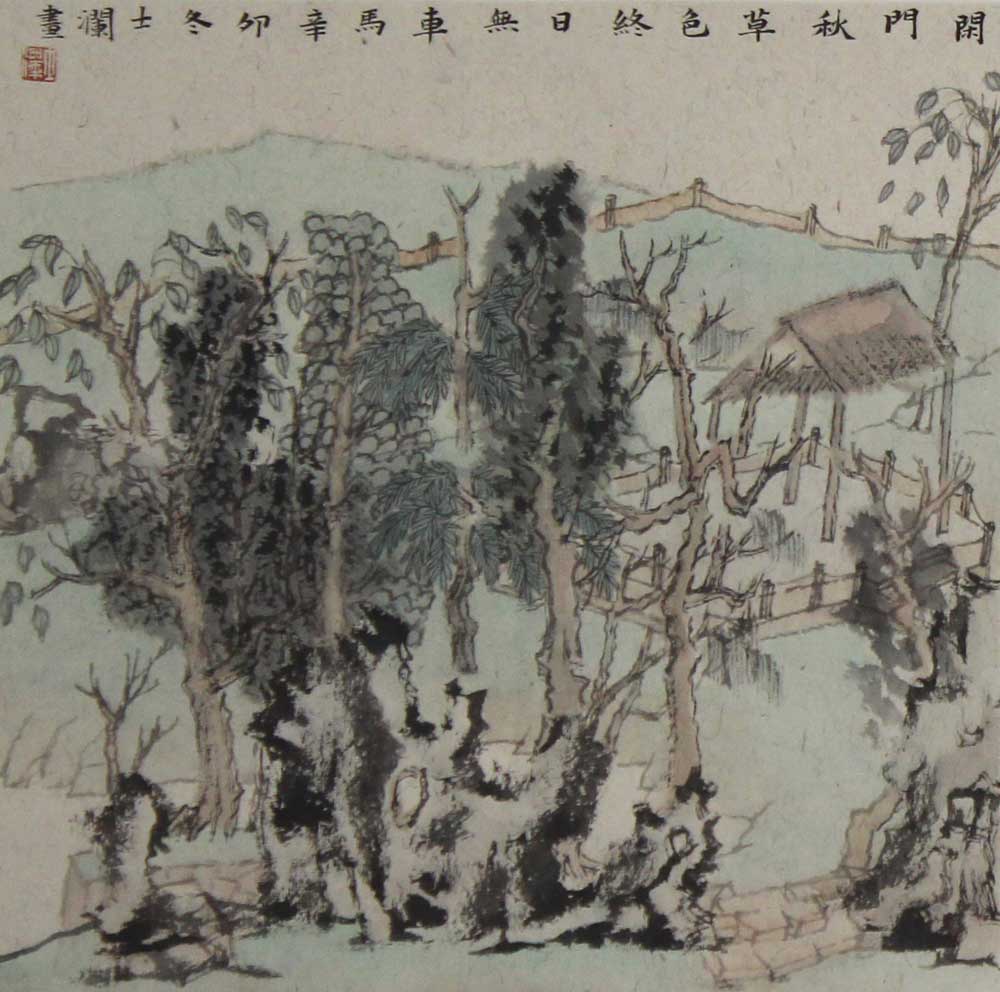 閑門秋草色終日無車馬辛卯冬士瀾畫